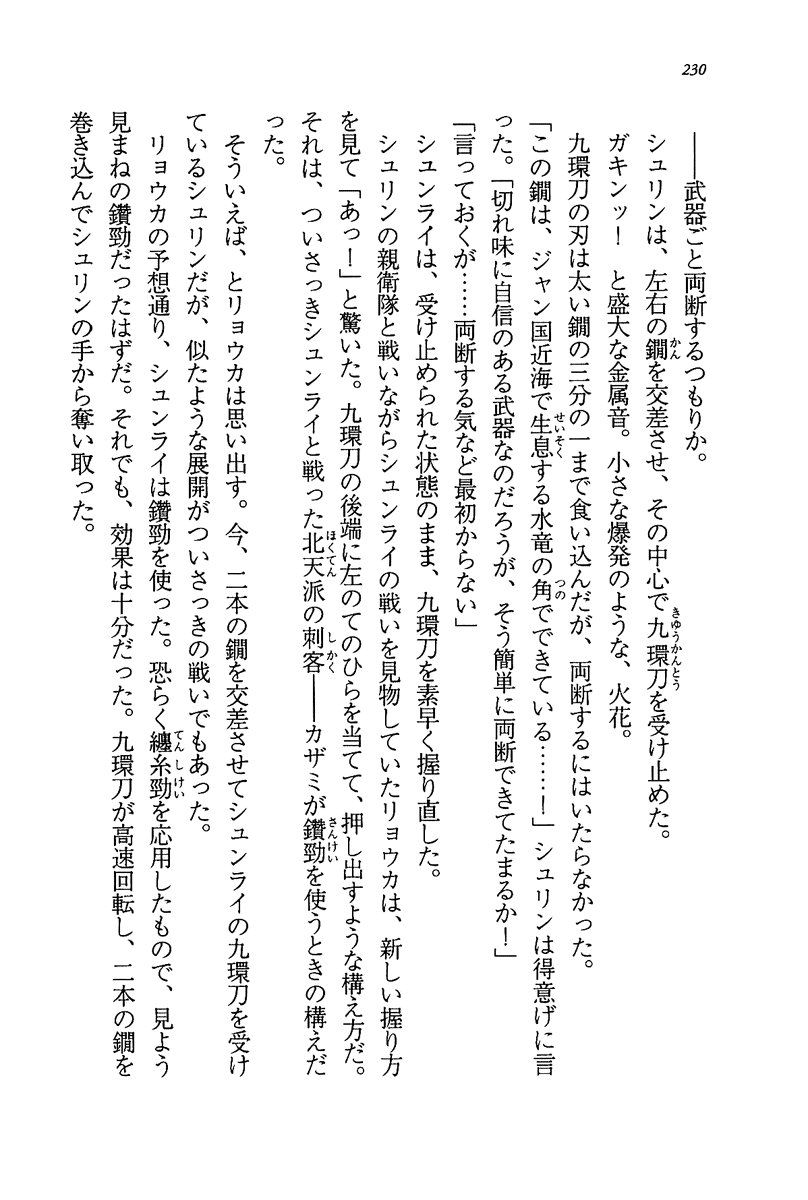 230
――武器ごと両断するつもりか。
シュリンは、左右の鐗を交差させ、その中心で九環刀を受け止めた。
ガキンッ！　と盛大な金属音。小さな爆発のような、火花。
九環刀の刃は太い鐗の三分の一まで食い込んだが、両断するにはいたらなかった。
「この鐗は、ジャン国近海で生息する水竜の角でできている……！」シュリンは得意げに言
った。「切れ味に自信のある武器なのだろうが、そう簡単に両断できてたまるか！」
「言っておくが……両断する気など最初からない」
シュンライは、受け止められた状態のまま、九環刀を素早く握り直した。
シュリンの親衛隊と戦いながらシュンライの戦いを見物していたリョウカは、新しい握り方
を見て「あっ！」と驚いた。九環刀の後端に左のてのひらを当てて、押し出すような構え方だ。
それは、ついさっきシュンライと戦った北天派の刺客――カザミが鑽勁を使うときの構えだ
った。
そういえば、とリョウカは思い出す。今、二本の鐗を交差させてシュンライの九環刀を受け
ているシュリンだが、似たような展開がついさっきの戦いでもあった。
リョウカの予想通り、シュンライは鑽勁を使った。恐らく纏糸勁を応用したもので、見よう
見まねの鑽勁だったはずだ。それでも、効果は十分だった。九環刀が高速回転し、二本の鐗を
巻き込んでシュリンの手から奪い取った。